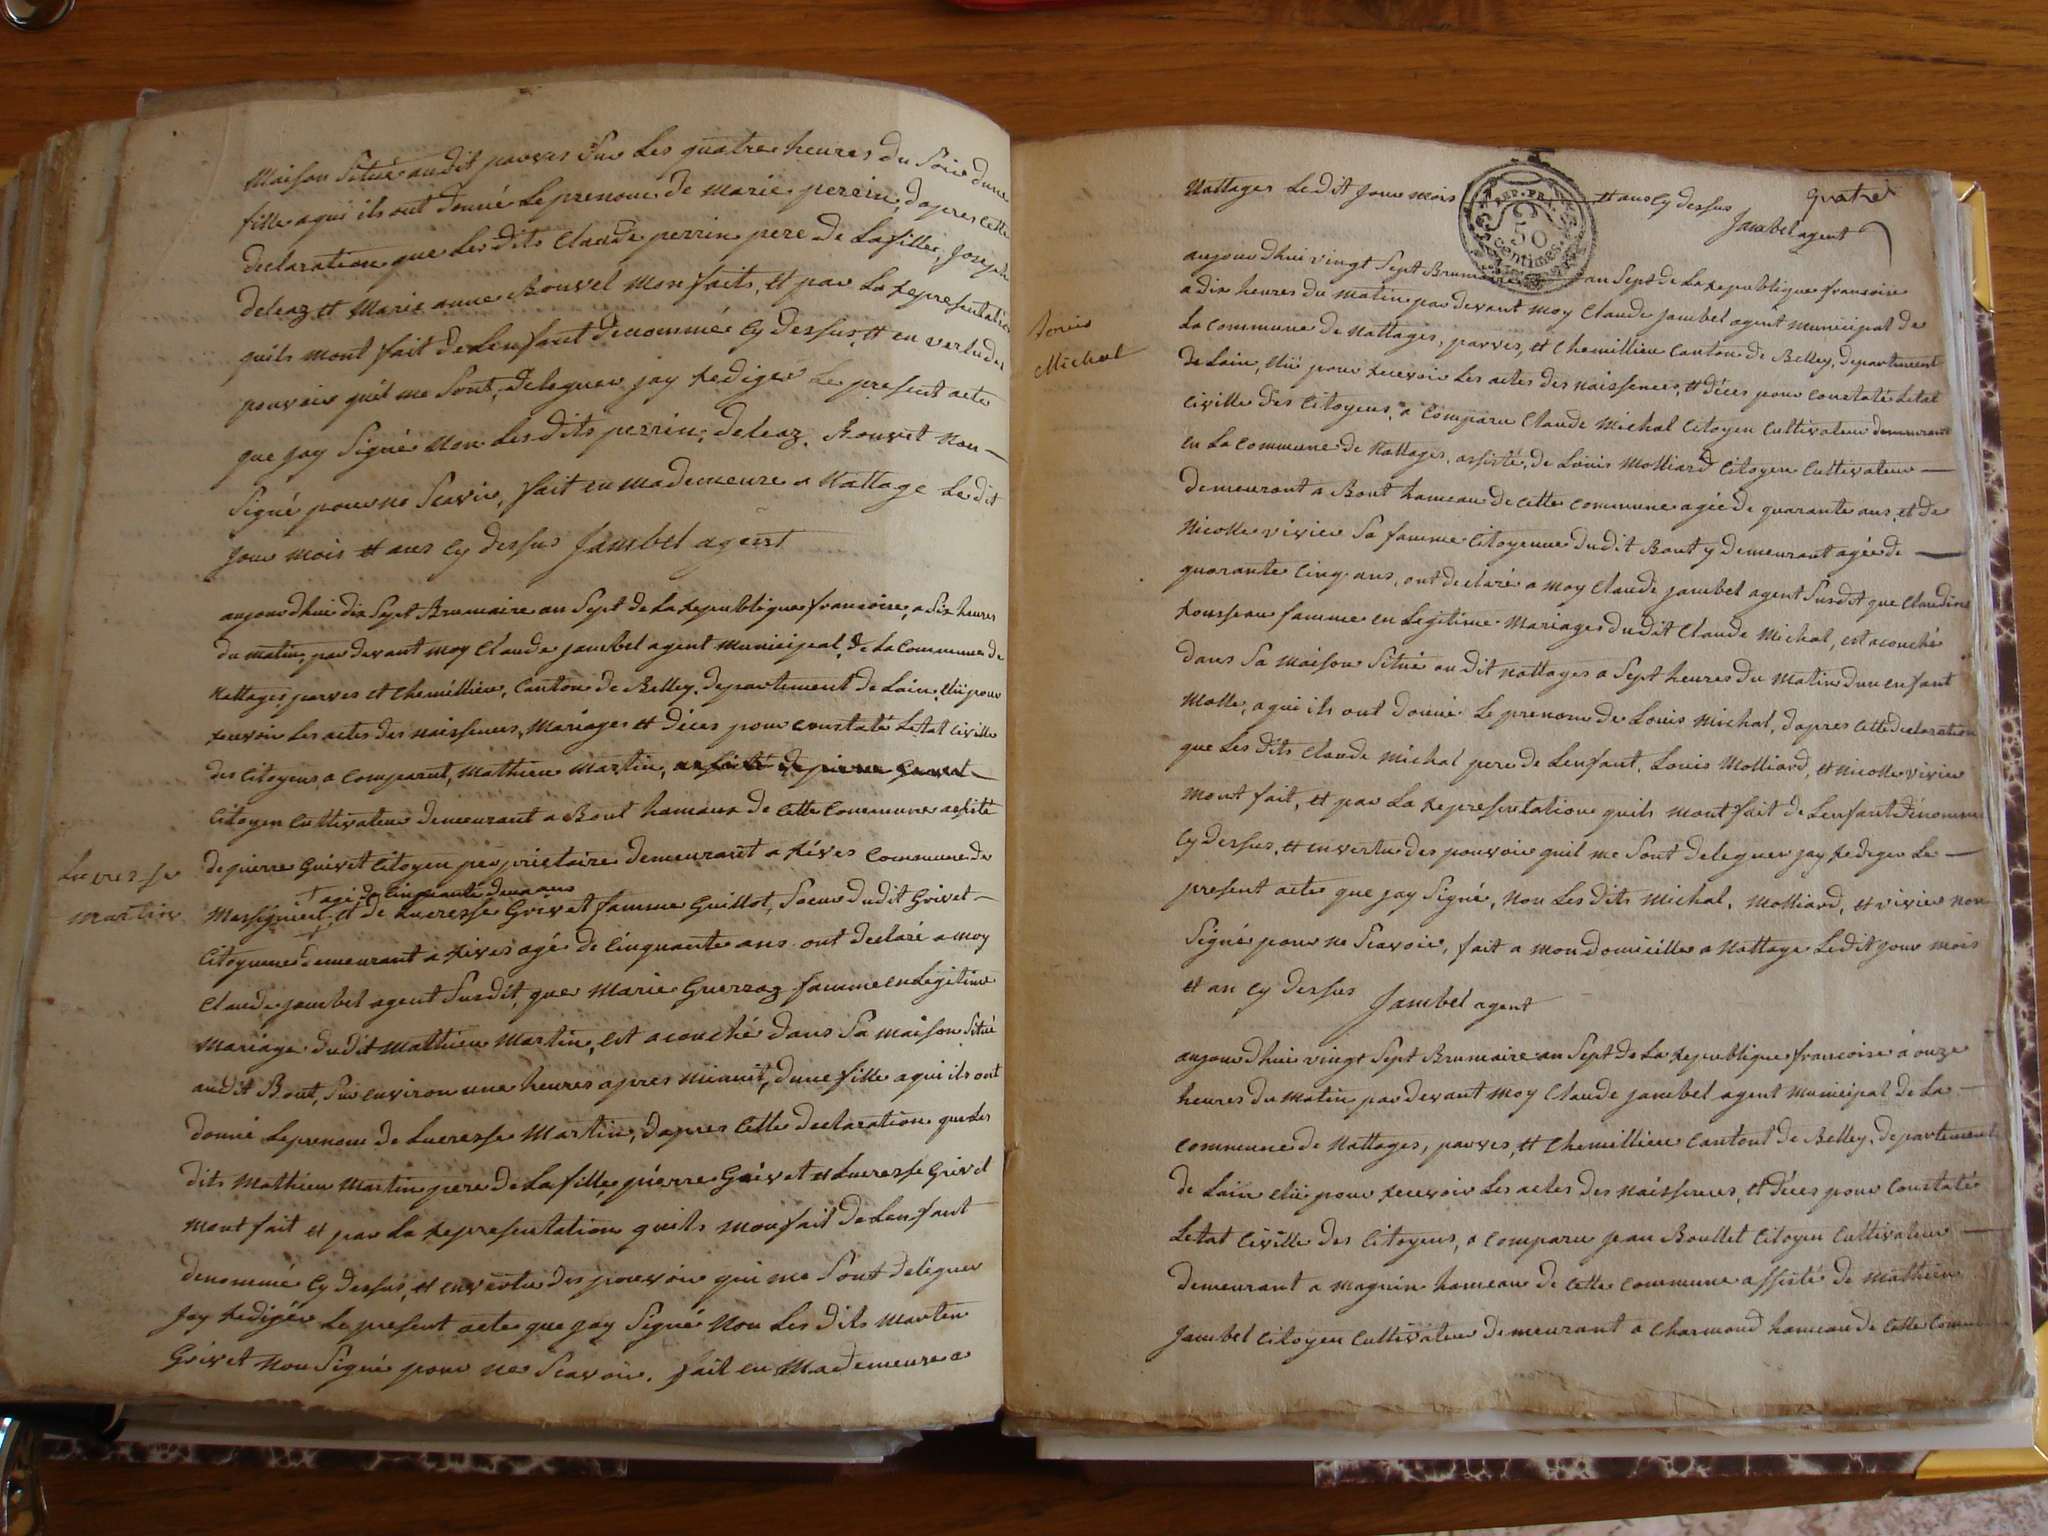 Maison Situé audit parves Sur Les quatre heures du Soir dune
fille aqui ils ont donné Leprenom de Marie perrin, dapres cette
declaration que Les dits Claude perrin pere de Lafille, Joseph
deleaz et Marie anne Bouvet mon faits, et par La Representation
quils mont fait de Lenfant denommé Cy dessus, et en vertu des
pouvoir quil me Sont, deleguer jay Rediger Le present acte
que jay Signé Non Les dits perrin, deleaz, Bouvet Non
Signé pour ne Scavoir, fait en mademeure a Nattage Le dit
Jour mois et ans Cy dessus Jambel agent
aujourdhui dix Sept Brumaire an Sept de La Republique francoise, a Six heures
du matin, par devant moy Claude jambel agent municipal, de La Commune de
Nattages parves et Chemillieu, Canton de Belley, departement de Lain, élü pour
recevoir Les actes des naissences, Mariages et déces pour constaté Letat Civille
des Citoyens, a Comparut, Mathieu Martin,
Citoyen Cultivateur demeurant a Bont hameaux de Cette Commune assisté
Lucresse
de pierre Grivet Citoyen proprietaire demeurant a Rives Commune de
agé de Cinquante deux ans
Martin
Massignieu et de Lucresse Grivet famme Guillot, Soeur dudit Grivet
Citoyenne demeurant a Rives agé de Cinquante ans ont declaré a moy
Claude jambel agent Susdit, que Marie Guerraz famme en Legitime
Mariage dudit Mathieu Martin, est acouché dans Sa maison Situé
audit Bont, Sur environ une heures apres minuit, dune fille aqui ils ont
donné Leprenom de Lucresse Martin, dapres Cette declaration que Les
dits Mathieu Martin pere de La fille, pierre Grivet et Lucresse Grivet
mont fait et par La Representation quils mon fait de Lenfant
denommé Cy dessus, et en vertu des pouvoir qui me Sont deleguer
Jay Rediger Le present acte que jay Signé Non Les dits Martin
Grivet Non Signé pour ne Scavoir. fait en Mademeure a
Nattages Ledit Jour mois et ans Cy dessus quatre
REP. FRA.
50
centimes
Jambel agent
aujourdhui vingt Sept Brumaire an Sept de La Republique francoise
a dix heures du matin par devant moy Claude jambel agent municipal de
Louis
La Commune de Nattages, parves, et Chemillieu Canton de Belley, departement
Michal
de Lain, élü pour Recevoir Les actes des naissences, et déces pour constaté Letat
Civille des Citoyens, a Comparu Claude Michal Citoyen Cultivateur demeurant
en La Commune de Nattages, assisté, de Louis Molliard Citoyen Cultivateur
demeurant a Bont hameau de Cette Commune agée de quarante ans, et de
Nicolle vivier Sa famme Citoyenne dudit Bont y demeurant agée de
quarante Cinq ans, ont declaré a moy Claude jambel agent Susdit que Claudine
Rousseau famme en Legitime Mariages dudit Claude Michal, est acouché
dans Sa Maison Situé audit Nattages a Sept heures du Matin dun enfant
Malle, aqui ils ont donné Le prenom de Louis Michal, dapres Cette declaration
que Les dits Claude Michal pere de Lenfant, Louis Molliard, et Nicolle vivier
mont fait, et par La Representation quils mont fait de Lenfant dénommé
Cy dessus, et en vertu des pouvoir quil me Sont deleguer jay Rediger Le
present acte que jay Signé, Non Les dits Michal, Molliard, et vivier Non
Signé pour ne Scavoir, fait a mon domicille a Nattage Ledit Jour mois
et an Cy dessus Jambel agent
aujourdhui vingt Sept Brumaire an Sept de La Republique francoise a onze
heures du Matin par devant moy Claude jambel agent Municipal de La
Commune de Nattages, parves, et Chemillieu Cantont de Belley, departement
de Lain élü pour Recevoir Les actes des naissences, et déces pour Constaté
Letat Civille des Citoyens, a Comparu jean Boullet Citoyen Cultivateur
demeurant a Magnin hameau de Cette Commune assisté de Mathieu
Jambel Citoyen Cultivateur demeurant a Charmond hameau de Cette Commune